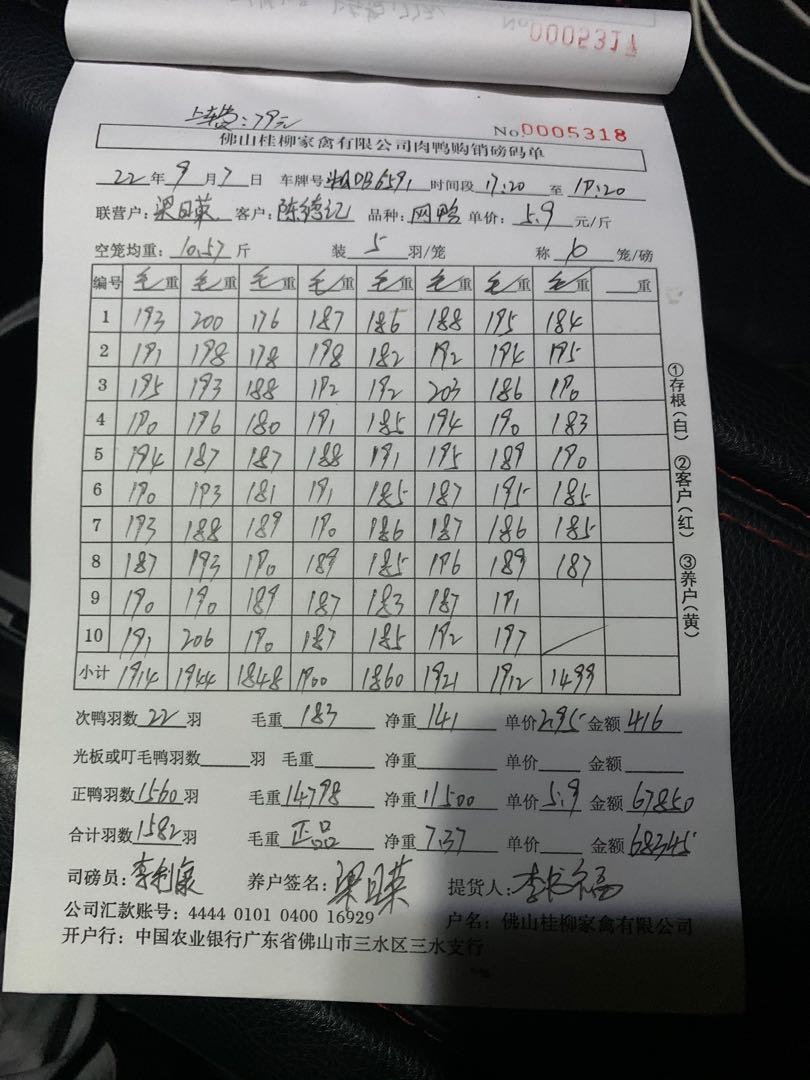 No.0005317
上车费:79元
No.0005318
佛山桂柳家禽有限公司肉鸭购销磅码单
22年9月7日 车牌号 DB6591 时间段17:20至19:20
联营户:梁日英 客户:陈德记 品种:网鸭 单价:5.9元/斤
空笼均重:10.57斤 装5羽/笼 称6笼/磅
编号 毛重 毛重 毛重 毛重 毛重 毛重 毛重 毛重 重
1 193 200 176 187 186 188 195 184
2 191 198 178 198 182 192 194 195
3 195 193 188 192 192 203 186 190
4 190 196 180 191 185 194 190 183
5 194 187 187 188 191 195 189 190
6 190 193 181 191 185 187 195 185
7 193 188 189 190 186 187 186 185
8 187 193 190 189 185 196 189 187
9 190 190 189 187 183 187 191
10 191 206 190 187 185 192 197
小计 1914 1944 1848 1900 1860 1921 1912 1499
次鸭羽数22羽 毛重183 净重141 单价2.95 金额416
光板或叮毛鸭羽数 羽 毛重 净重 单价 金额
正鸭羽数1560羽 毛重14798 净重11500 单价5.9 金额67850
合计羽数1582羽 毛重正品 净重7.37 单价 金额68345
司磅员: 养户签名:梁日英 提货人:
公司汇款账号:4444 0101 0400 16929 户名:佛山桂柳家禽有限公司
开户行:中国农业银行广东省佛山市三水区三水支行
①存根(白) ②客户(红) ③养户(黄)